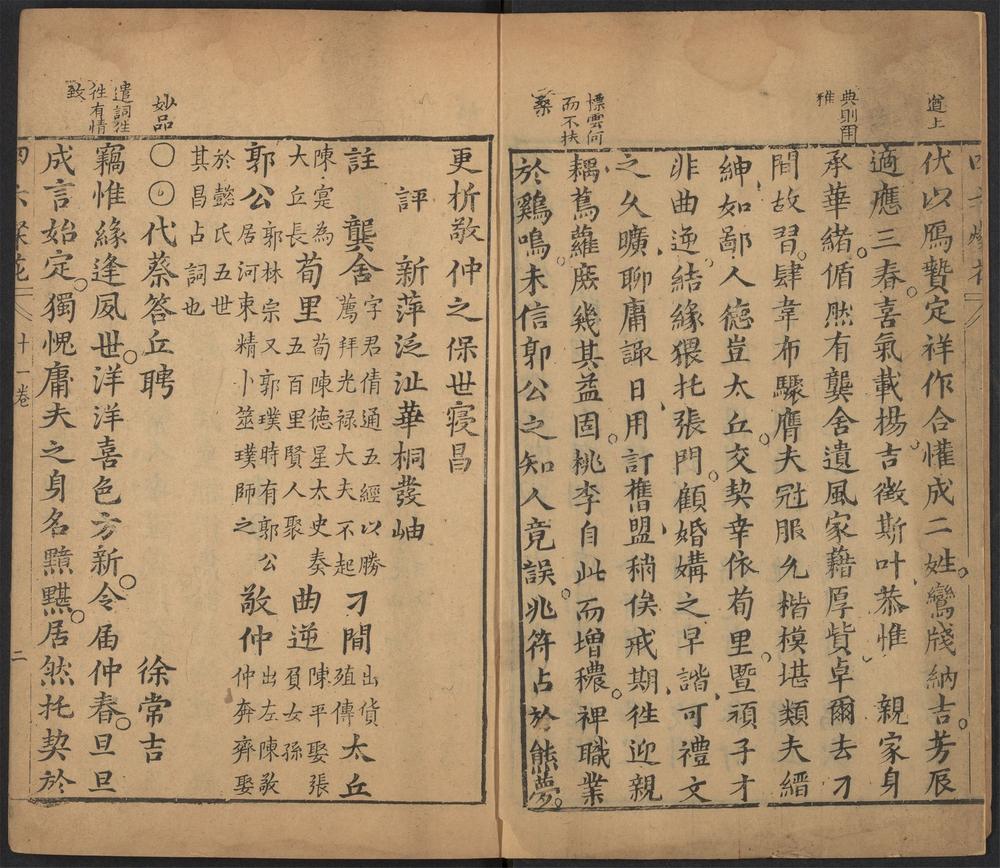 道上
典則爾
雅
標雲何
而不扶
蔡
伏以鴈贄定祥作合懽成二姓鸞牋納吉芳辰
適應三春喜氣載揚吉徵斯叶恭惟 親家身
承華緒循然有龔舍遺風家藉厚貲卓爾去刁
間故習肆韋布驟膺夫冠服允楷模堪類夫縉
紳如鄙人德豈太丘交契幸依荀里暨頑子才
非曲逆結緣猥托張門顧婚媾之早諧可禮文
之久曠聊庸諏日用訂舊盟稍俟戒期徃迎親
耦蔦蘿庶幾其益固桃李自此而增穠裨職業
於鷄鳴未信郭公之知人竟誤兆符占於熊夢
更析敬仲之保世寖昌
評 新萍泛沚華桐發岫
註 龔舍字君倩通五經以勝
薦拜光禄大夫不起刁間出貨
殖傳太丘
陳寔為
大丘長荀里荀陳德星太史奏
五百里賢人聚曲逆陳平娶張
負女孫
郭公郭林宗又郭璞時有郭公
居河東精卜筮璞師之敬仲出左陳敬
仲奔齊娶
於懿氏五世
其昌占詞也
妙品
遣詞徃
徃有情
致
〇◎代蔡答丘聘 徐常吉
竊惟緣逢夙世洋洋喜色方新令届仲春旦旦
成言始定獨愧庸夫之身名黯黮居然托契於
十一卷
二